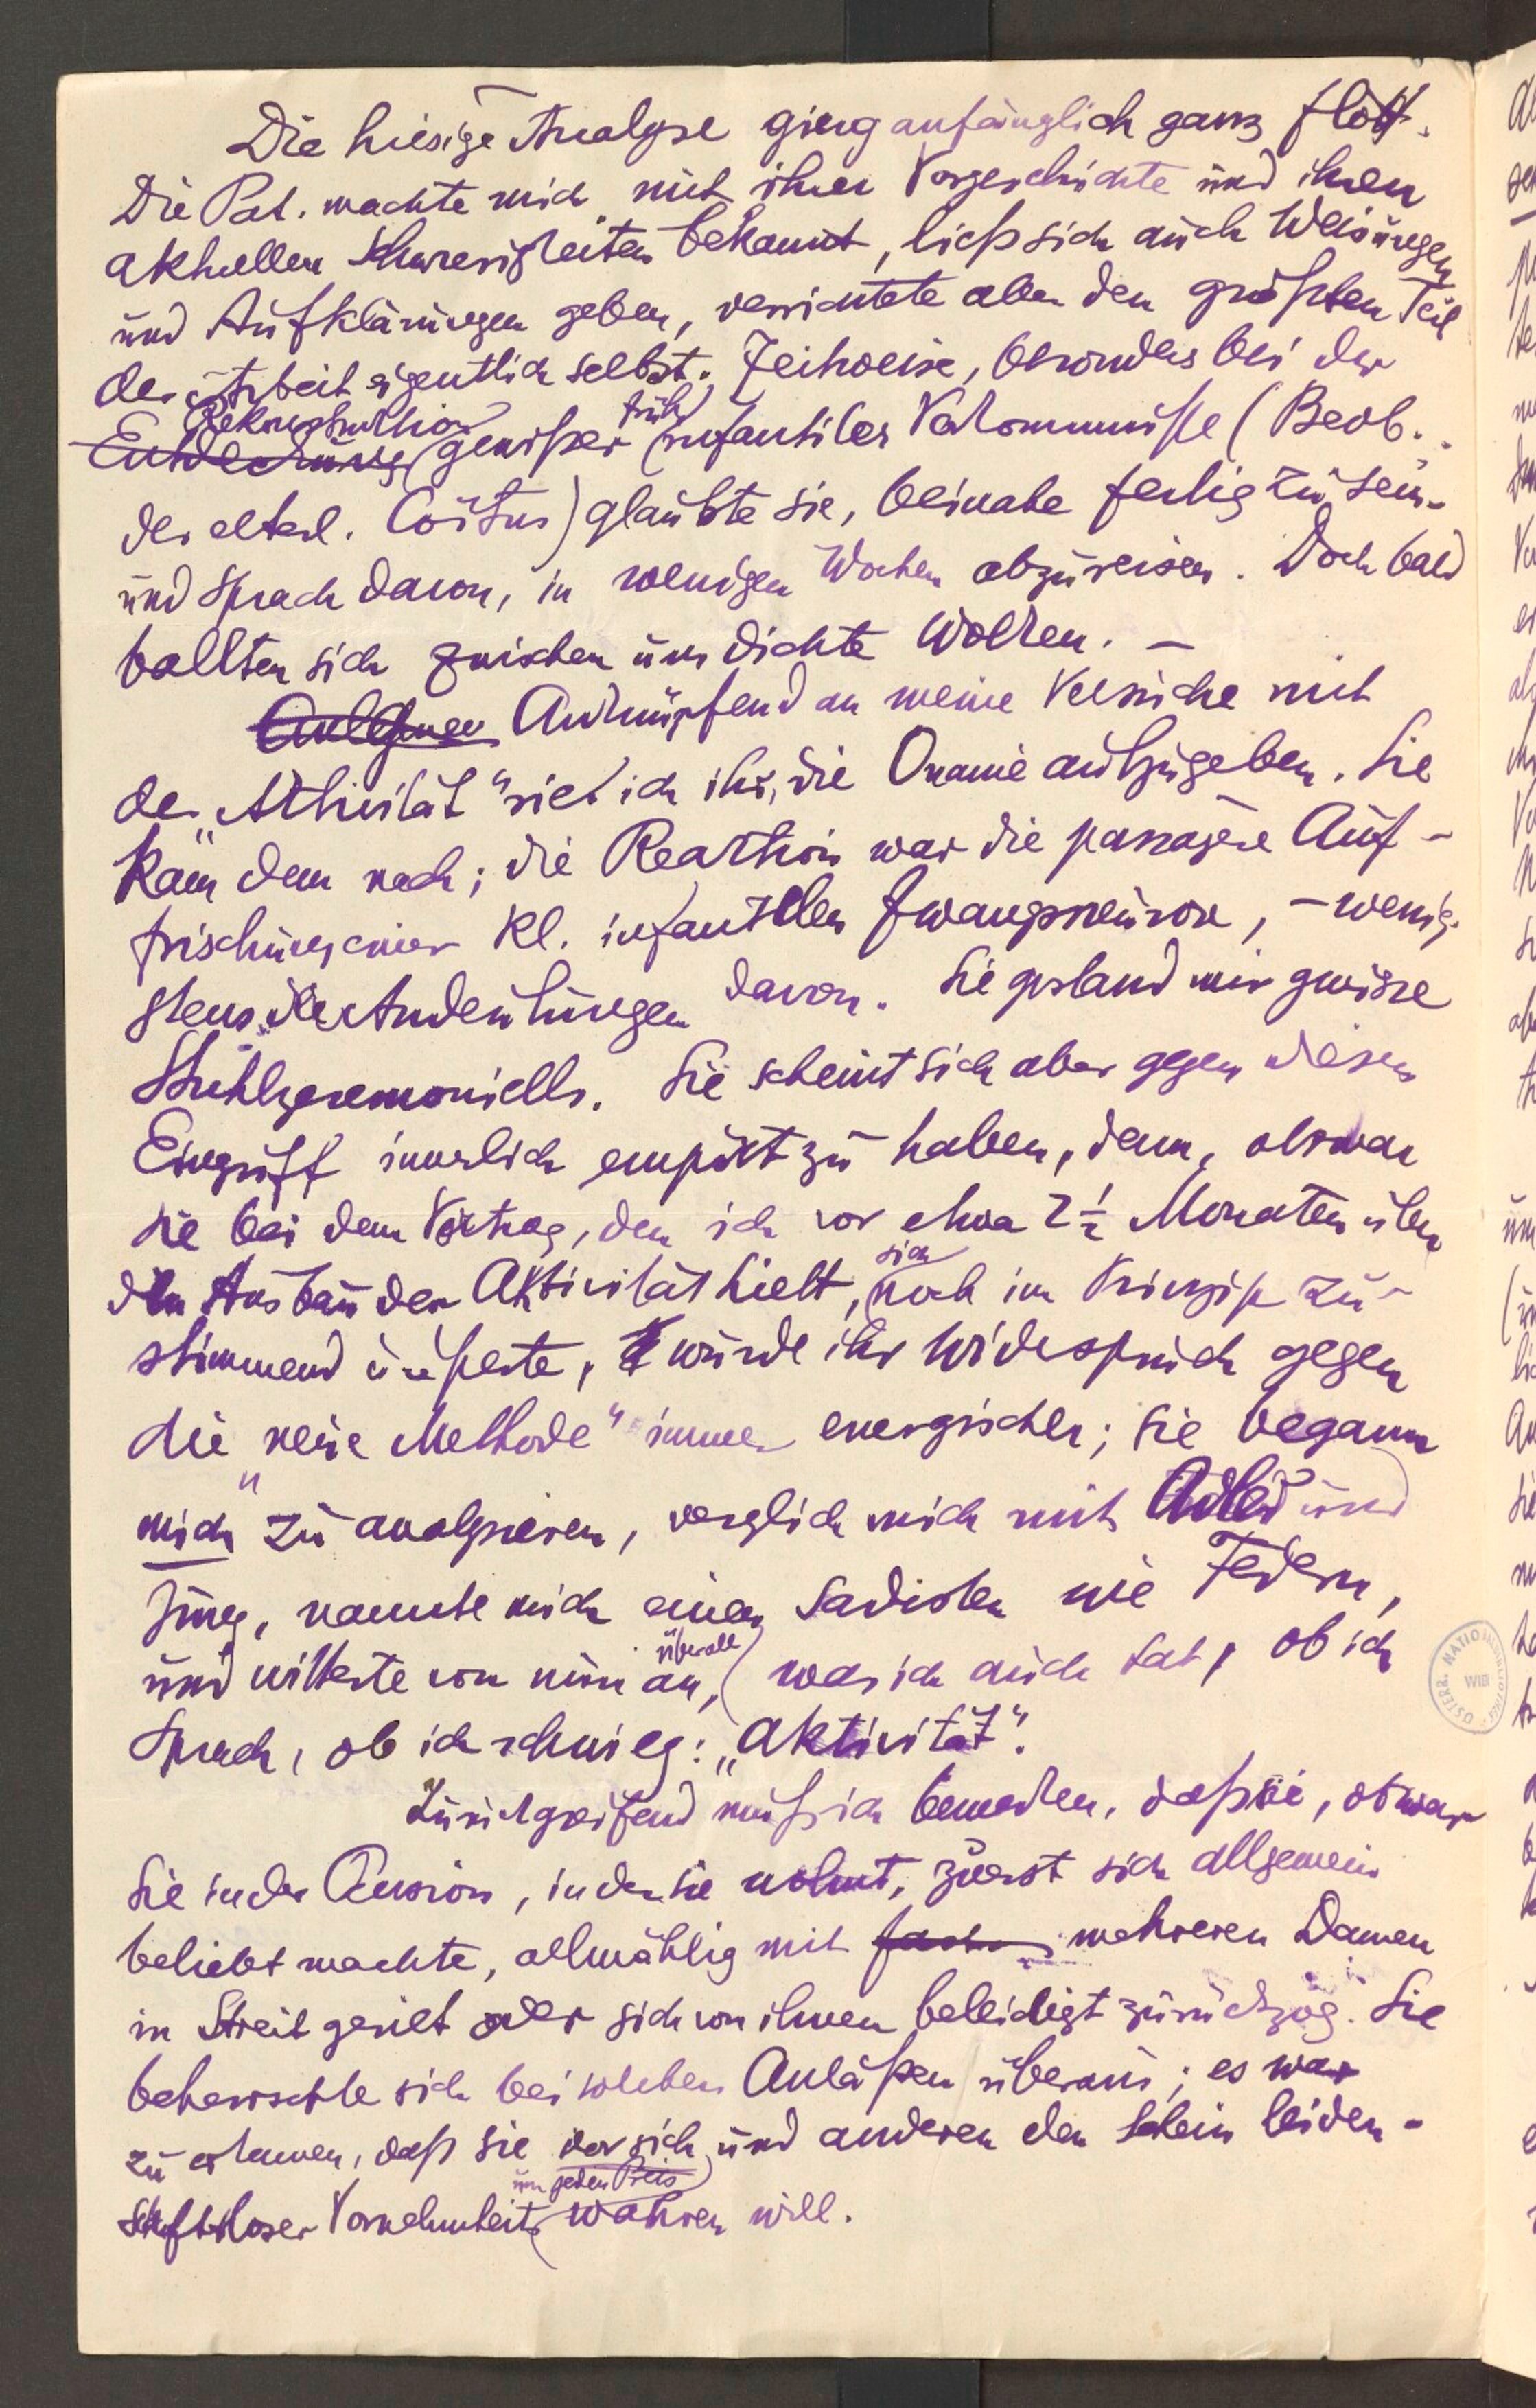 Die hiesige Analyse gieng anfänglich ganz flott.
Die Pat. machte mich mit ihrer Vorgeschichte und ihren
aktuellen Schwierigkeiten bekannt, ließ sich auch Weisungen
und Aufklärungen geben, verrichtete aber den größten Teil
der Arbeit eigentlich selbst. Zeitweise, besonders bei der
Rekonstruktion früh
Entdeckung gewißer infantiler Vorkommniße (Beob.
des elterl. Coïtus) glaubte sie, beinahe fertig zu sein
und sprach davon, in wenigen Wochen abzureisen. Doch bald
ballten sich zwischen uns dichte Wolken. –
Anknüpfend an meine Versuche mit
der „Aktivität“ riet ich ihr, die Onanie aufzugeben. Sie
kam dem nach; die Reaktion war die passagère Auf-
frischung einer kl. infantilen Zwangsneurose, – wenig-
stens der Andeutungen davon. Sie gestand mir gewisse
Stuhlzeremoniells. Sie scheint sich aber gegen diesen
Eingriff innerlich empört zu haben, denn, obzwar
sie bei dem Vortrag, den ich vor etwa 2½ Monaten über
sich
den Ausbau der Aktivität hielt, noch im Prinzip zu-
stimmend äußerte, wurde ihr Widerspruch gegen
die „neue Methode“ immer energischer; sie begann
mich zu analysieren, verglich mich mit Adler und
Jung, nannte mich einen Sadisten wie Federn,
überall
und witterte von nun an, was ich auch tat, ob ich
sprach, ob ich schwieg: „Aktivität“.
Zurückgreifend muß ich bemerken, daß sie, obzwar
sie in der Pension, in der sie wohnt, zuerst sich allgemein
beliebt machte, allmählig mit mehreren Damen
in Streit geriet oder sich von ihnen beleidigt zurückzog. Sie
beherrschte sich bei solchen Anläßen überaus; es war
zu erkennen, daß sie vor sich und anderen den Schein leiden-
um jeden Preis
schaftsloser Vornehmheit wahren will.
ÖSTERR. NATIONALBIBLIOTHEK WIEN